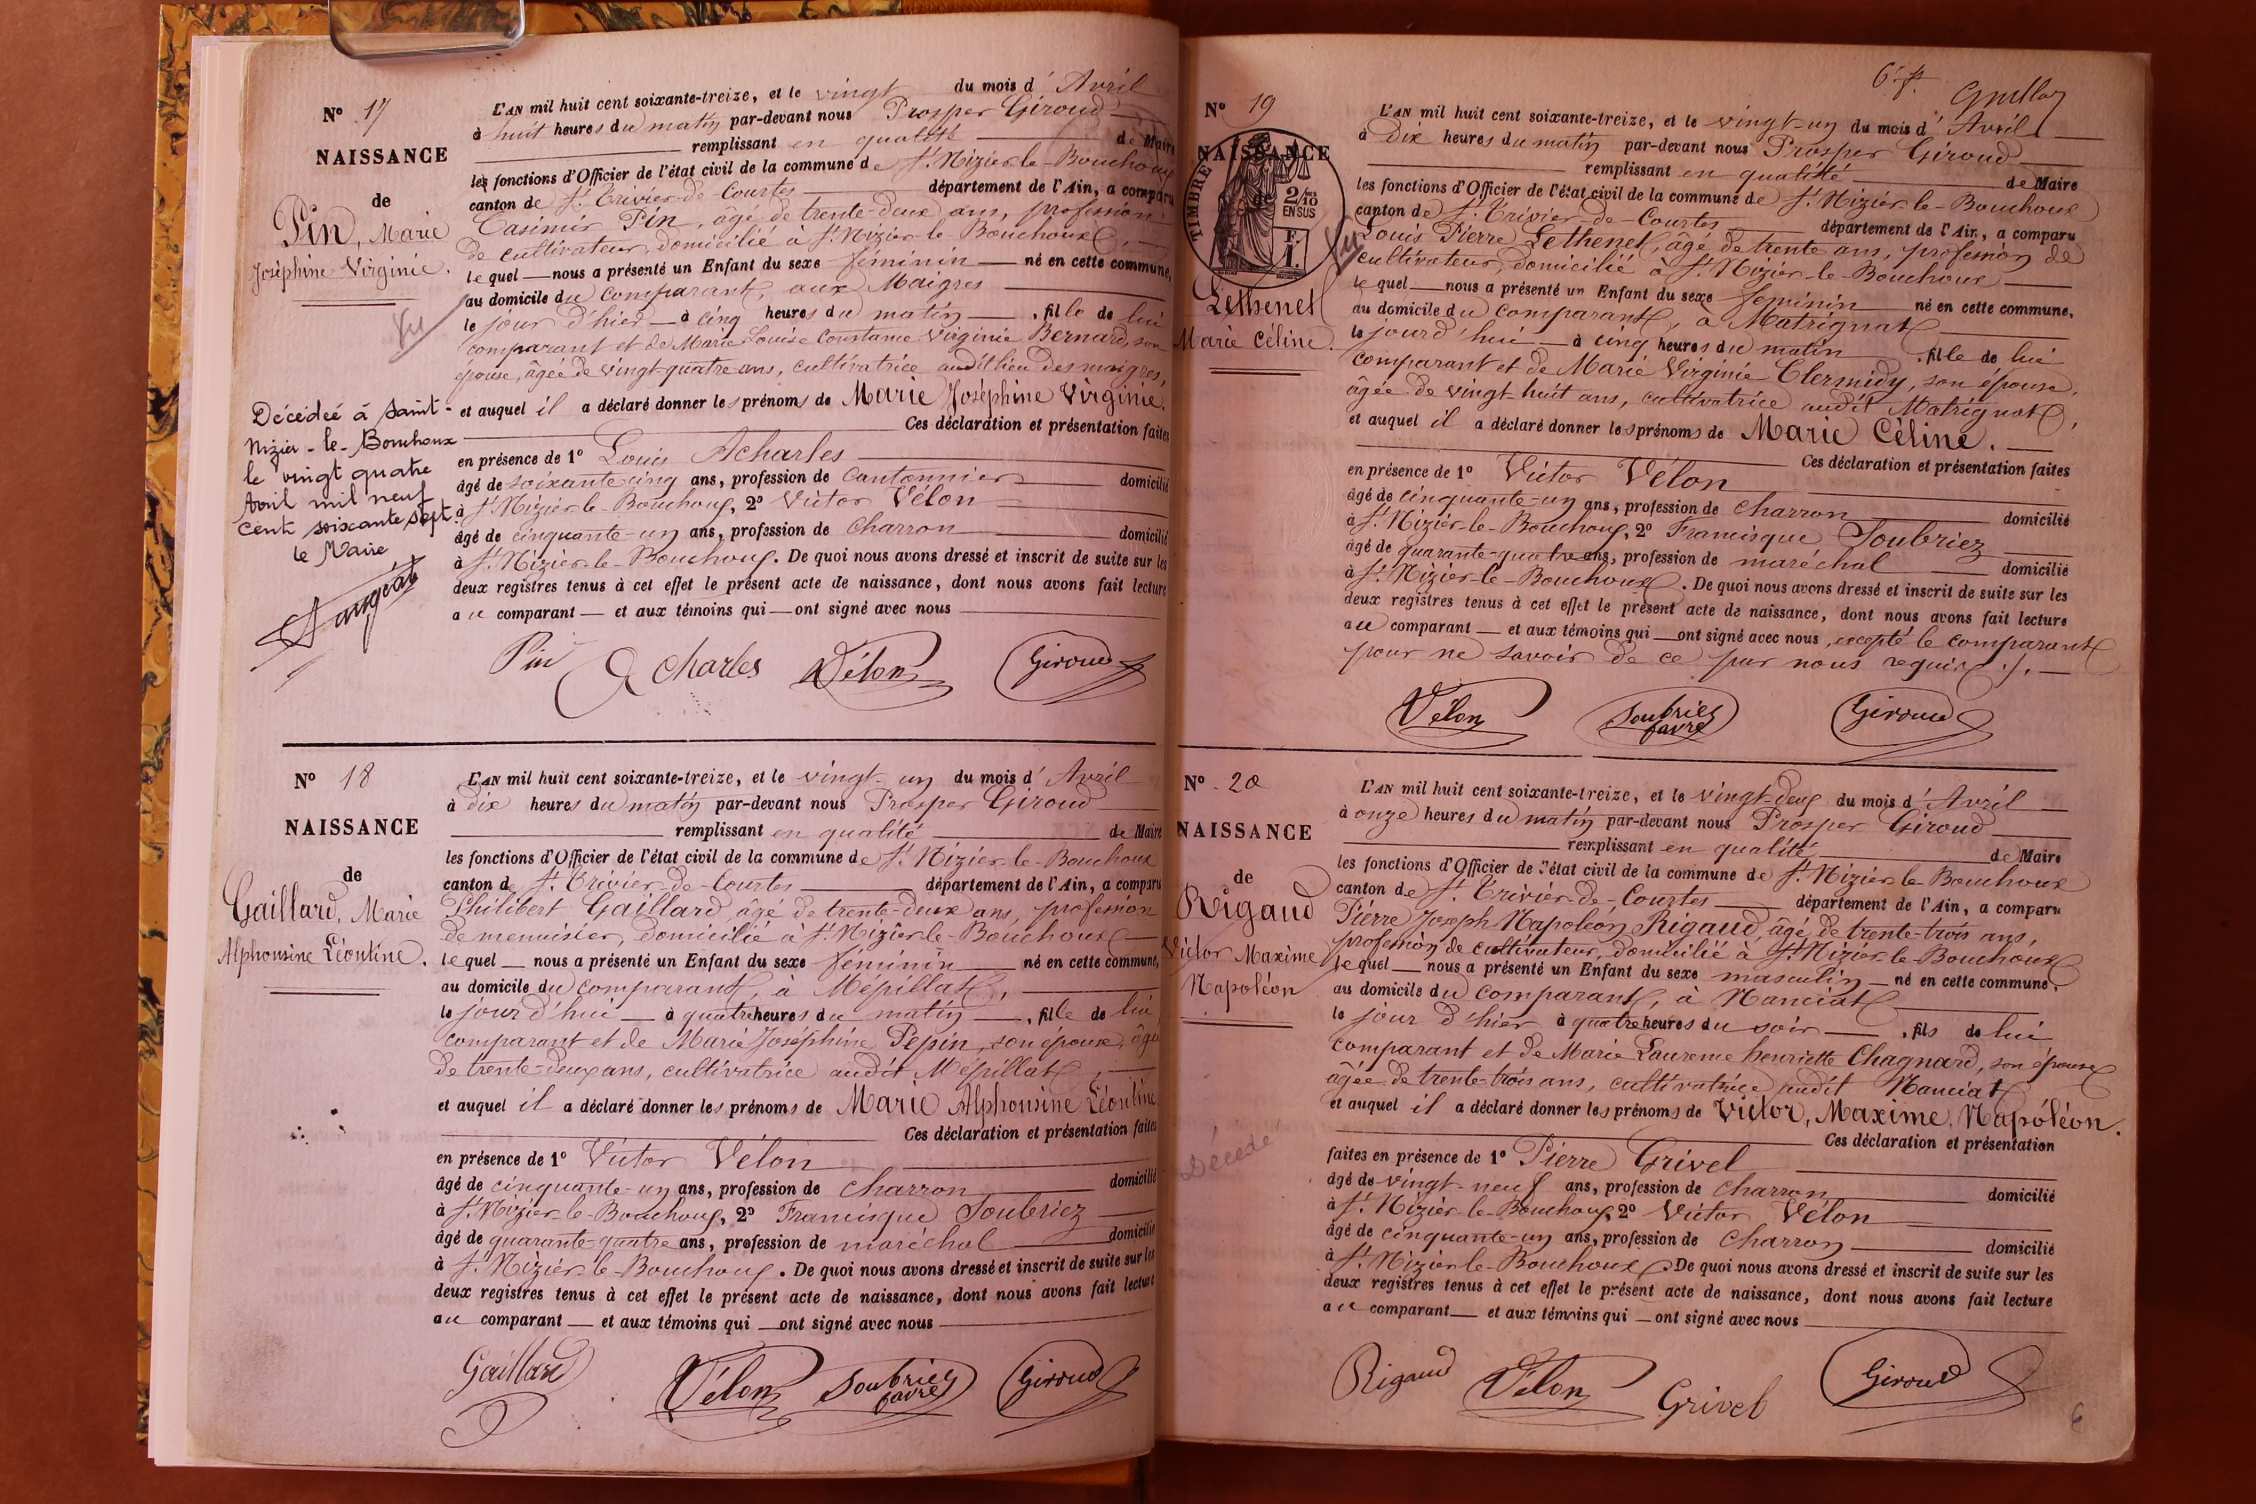 N° 17
NAISSANCE
de
Pin, Marie
Joséphine Virginie.
Vu
Décédée à Saint-
Nizier-le-Bouchoux
le vingt quatre
Avril mil neuf
cent soixante sept
le Maire
L'AN mil huit cent soixante-treize, et le vingt du mois d'Avril
à huit heures du matin par-devant nous Prosper Giroud
remplissant en qualité de Maire
les fonctions d'Officier de l'état civil de la commune de St. Nizier-le-Bouchoux
canton de St. Trivier-de-Courtes département de l'Ain, a comparu
Casimir Pin, âgé de trente-deux ans, profession
de cultivateur, domicilié à St. Nizier-le-Bouchoux,
lequel nous a présenté un Enfant du sexe féminin né en cette commune,
au domicile du comparant, aux Maigres
le jour d'hier à cinq heures du matin, fille de lui
comparant et de Marie Louise Constance Virginie Bernard, son
épouse, âgée de vingt-quatre ans, cultivatrice audit lieu des maigres,
et auquel il a déclaré donner les prénoms de Marie Joséphine Virginie.
Ces déclaration et présentation faites
en présence de 1° Louis Acharles
âgé de soixante cinq ans, profession de cantonnier domicilié
à St. Nizier-le-Bouchoux, 2° Victor Vélon
âgé de cinquante-un ans, profession de charron domicilié
à St. Nizier-le-Bouchoux. De quoi nous avons dressé et inscrit de suite sur les
deux registres tenus à cet effet le présent acte de naissance, dont nous avons fait lecture
au comparant et aux témoins qui ont signé avec nous
Pin Acharles Vélon Giroud
N° 18
NAISSANCE
de
Gaillard, Marie
Alphonsine Léontine.
L'AN mil huit cent soixante-treize, et le vingt-un du mois d'Avril
à dix heures du matin par-devant nous Prosper Giroud
remplissant en qualité de Maire
les fonctions d'Officier de l'état civil de la commune de St. Nizier-le-Bouchoux
canton de St. Trivier-de-Courtes département de l'Ain, a comparu
Philibert Gaillard, âgé de trente-deux ans, profession
de menuisier, domicilié à St. Nizier-le-Bouchoux
lequel nous a présenté un Enfant du sexe féminin né en cette commune,
au domicile du comparant, à Mépillat,
le jour d'hui à quatre heures du matin, fille de lui
comparant et de Marie Joséphine Pépin, son épouse, âgée
de trente-deux ans, cultivatrice audit Mépillat,
et auquel il a déclaré donner les prénoms de Marie Alphonsine Léontine
Ces déclaration et présentation faites
en présence de 1° Victor Vélon
âgé de cinquante-un ans, profession de charron domicilié
à St. Nizier-le-Bouchoux, 2° Francisque Soubriez
âgé de quarante-quatre ans, profession de maréchal domicilié
à St. Nizier-le-Bouchoux. De quoi nous avons dressé et inscrit de suite sur les
deux registres tenus à cet effet le présent acte de naissance, dont nous avons fait lecture
au comparant et aux témoins qui ont signé avec nous
Gaillard Vélon Soubriez favre Giroud
N° 19
NAISSANCE
TIMBRE
2/10
EN SUS
F.
1.
Vu
Lethenet
Marie Céline.
L'AN mil huit cent soixante-treize, et le vingt-un du mois d'Avril
à dix heures du matin par-devant nous Prosper Giroud
remplissant en qualité de Maire
les fonctions d'Officier de l'état civil de la commune de St. Nizier-le-Bouchoux
canton de St. Trivier-de-Courtes département de l'Ain, a comparu
Louis Pierre Lethenet, âgé de trente ans, profession de
cultivateur, domicilié à St. Nizier-le-Bouchoux
lequel nous a présenté un Enfant du sexe féminin né en cette commune,
au domicile du comparant, à Matrignat
le jour d'hui à cinq heures du matin, fille de lui
comparant et de Marie Virginie Clermidy, son épouse,
âgée de vingt-huit ans, cultivatrice audit Matrignat,
et auquel il a déclaré donner les prénoms de Marie Céline.
Ces déclaration et présentation faites
en présence de 1° Victor Vélon
âgé de cinquante-un ans, profession de charron domicilié
à St. Nizier-le-Bouchoux, 2° Francisque Soubriez
âgé de quarante-quatre ans, profession de maréchal domicilié
à St. Nizier-le-Bouchoux. De quoi nous avons dressé et inscrit de suite sur les
deux registres tenus à cet effet le présent acte de naissance, dont nous avons fait lecture
au comparant et aux témoins qui ont signé avec nous, excepté le comparant
pour ne savoir de ce par nous requis./.
Vélon Soubriez favre Giroud
N° 20
NAISSANCE
de
Rigaud
Victor Maxime
Napoléon
Décédé
L'AN mil huit cent soixante-treize, et le vingt-deux du mois d'Avril
à onze heures du matin par-devant nous Prosper Giroud
remplissant en qualité de Maire
les fonctions d'Officier de l'état civil de la commune de St. Nizier-le-Bouchoux
canton de St. Trivier-de-Courtes département de l'Ain, a comparu
Pierre Joseph Napoléon Rigaud, âgé de trente-trois ans,
profession de cultivateur, domicilié à St. Nizier-le-Bouchoux
lequel nous a présenté un Enfant du sexe masculin né en cette commune,
au domicile du comparant, à Nanciat
le jour d'hier à quatre heures du soir, fils de lui
comparant et de Marie Laurence henriette Chagnard, son épouse
âgée de trente-trois ans, cultivatrice audit Nanciat
et auquel il a déclaré donner les prénoms de Victor, Maxime, Napoléon.
Ces déclaration et présentation
faites en présence de 1° Pierre Grivel
âgé de vingt-neuf ans, profession de charron domicilié
à St. Nizier-le-Bouchoux, 2° Victor Vélon
âgé de cinquante-un ans, profession de charron domicilié
à St. Nizier-le-Bouchoux. De quoi nous avons dressé et inscrit de suite sur les
deux registres tenus à cet effet le présent acte de naissance, dont nous avons fait lecture
au comparant et aux témoins qui ont signé avec nous
Rigaud Vélon Grivel Giroud
6